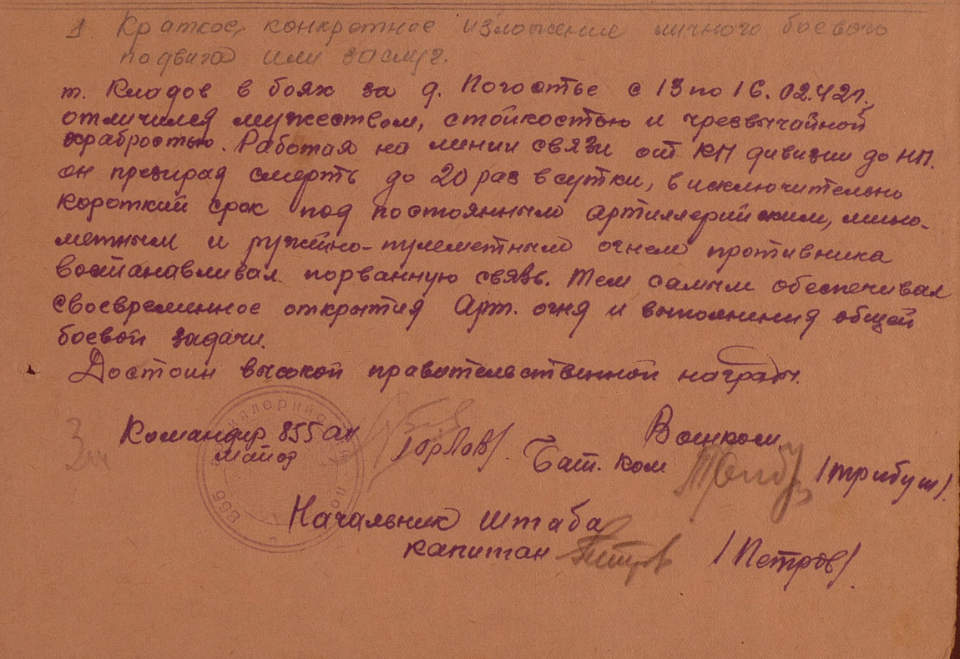 1. Краткое, конкретное изложение личного боевого
подвига или заслуг.
т. Кладов в боях за д. Погостье с 13 по 16.02.42г.
отличился мужеством, стойкостью и чрезвычайной
храбростью. Работая на линии связи от КП дивизии до НП.
он презирая смерть до 20 раз в сутки, в исключительно
короткий срок под постоянным артиллерийским, мино-
метным и ружейно-пулеметным огнем противника
востанавливал порванную связь. Тем самым обеспечивал
своевременное открытия Арт. огня и выполнения общей
боевой задачи.
Достоин высокой правительственной награды.
Командир 855 ап Военком
майор /Горлов/. Бат. ком /Трибуш/.
Начальник Штаба
капитан Петров /Петров/.
855